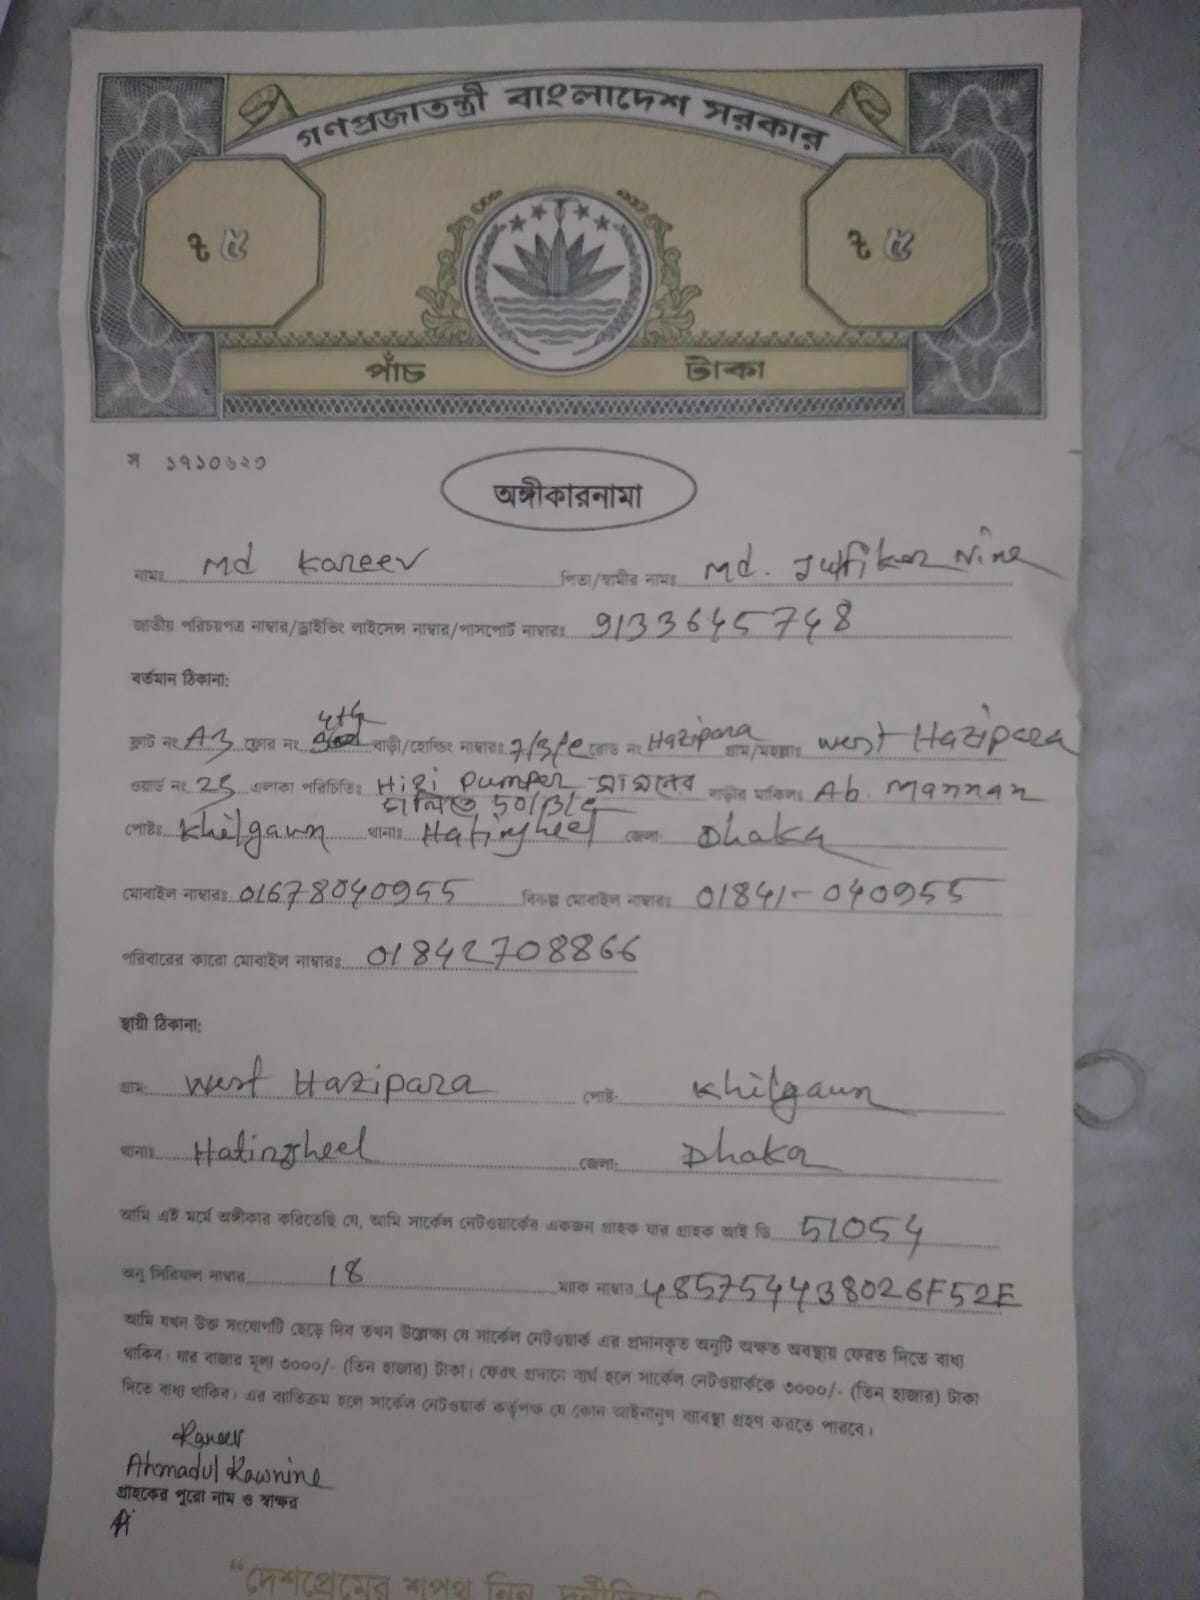 গণপ্রজাতন্ত্রী বাংলাদেশ সরকার
৳ ৫ ৳ ৫
পাঁচ টাকা
স ১৭১০৬২৩
অঙ্গীকারনামা
নামঃ Md Kareev পিতা/স্বামীর নামঃ Md. Nine
জাতীয় পরিচয়পত্র নাম্বার/ড্রাইভিং লাইসেন্স নাম্বার/পাসপোর্ট নাম্বারঃ 9133645748
বর্তমান ঠিকানা:
ফ্লাট নং A3 ফ্লোর নং 4th বাড়ী/হোল্ডিং নাম্বারঃ 7/3/e রোড নং Hazipara গ্রাম/মহল্লাঃ West Hazipara
ওয়ার্ড নং 25 এলাকা পরিচিতিঃ Hizi Pumper সামনের বাড়ীর মালিকঃ Ab. Mannan
গলিতে
পোষ্টঃ Khilgaun থানাঃ Hatirgheel জেলা: Dhaka
মোবাইল নাম্বারঃ 01678040955 বিকল্প মোবাইল নাম্বারঃ 01841-040955
পরিবারের কারো মোবাইল নাম্বারঃ 01842708866
স্থায়ী ঠিকানা:
গ্রাম: West Hazipara পোষ্ট: Khilgaun
থানাঃ Hatirgheel জেলা: Dhaka
আমি এই মর্মে অঙ্গীকার করিতেছি যে, আমি সার্কেল নেটওয়ার্কের একজন গ্রাহক যার গ্রাহক আই ডি 51054
অনু সিরিয়াল নাম্বার 18 ম্যাক নাম্বার 485754438026F52E
আমি যখন উক্ত সংযোগটি ছেড়ে দিব তখন উল্লেক্ষ্য যে সার্কেল নেটওয়ার্ক এর প্রদানকৃত অনুটি অক্ষত অবস্থায় ফেরত দিতে বাধ্য
থাকিব। যার বাজার মূল্য ৩০০০/- (তিন হাজার) টাকা। ফেরৎ প্রদানে ব্যর্থ হলে সার্কেল নেটওয়ার্ককে ৩০০০/- (তিন হাজার) টাকা
দিতে বাধ্য থাকিব। এর ব্যতিক্রম হলে সার্কেল নেটওয়ার্ক কর্তৃপক্ষ যে কোন আইনানুগ ব্যবস্থা গ্রহণ করতে পারবে।
Kareev
Ahmadul Kawnine
গ্রাহকের পুরো নাম ও স্বাক্ষর
"দেশপ্রেমের শপথ নিন